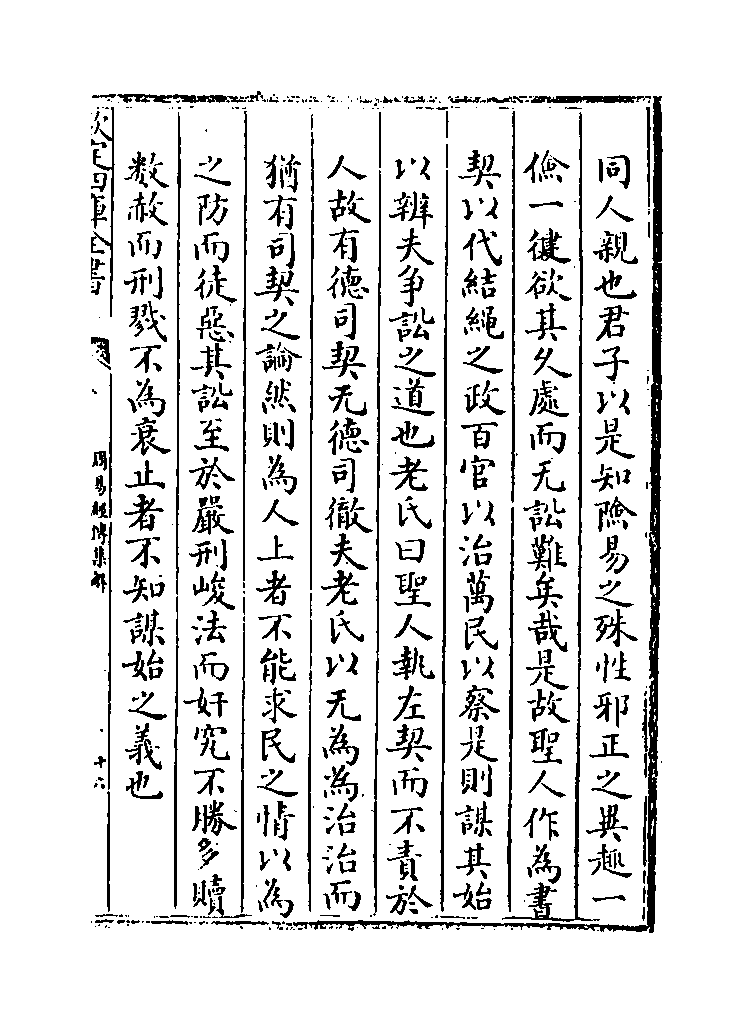 同人親也君子以是知險易之殊性邪正之異趣一
儉一健欲其久處而无訟難矣哉是故聖人作為書
契以代結繩之政百官以治萬民以察是則謀其始
以辨夫争訟之道也老氏曰聖人執左契而不責於
人故有德司契无德司徹夫老氏以无為為治治而
猶有司契之論然則為人上者不能求民之情以為
之防而徒惡其訟至於嚴刑峻法而奸宄不勝多贖
数赦而刑戮不為衰止者不知謀始之義也
欽定四庫全書
周易經傳集解
十六